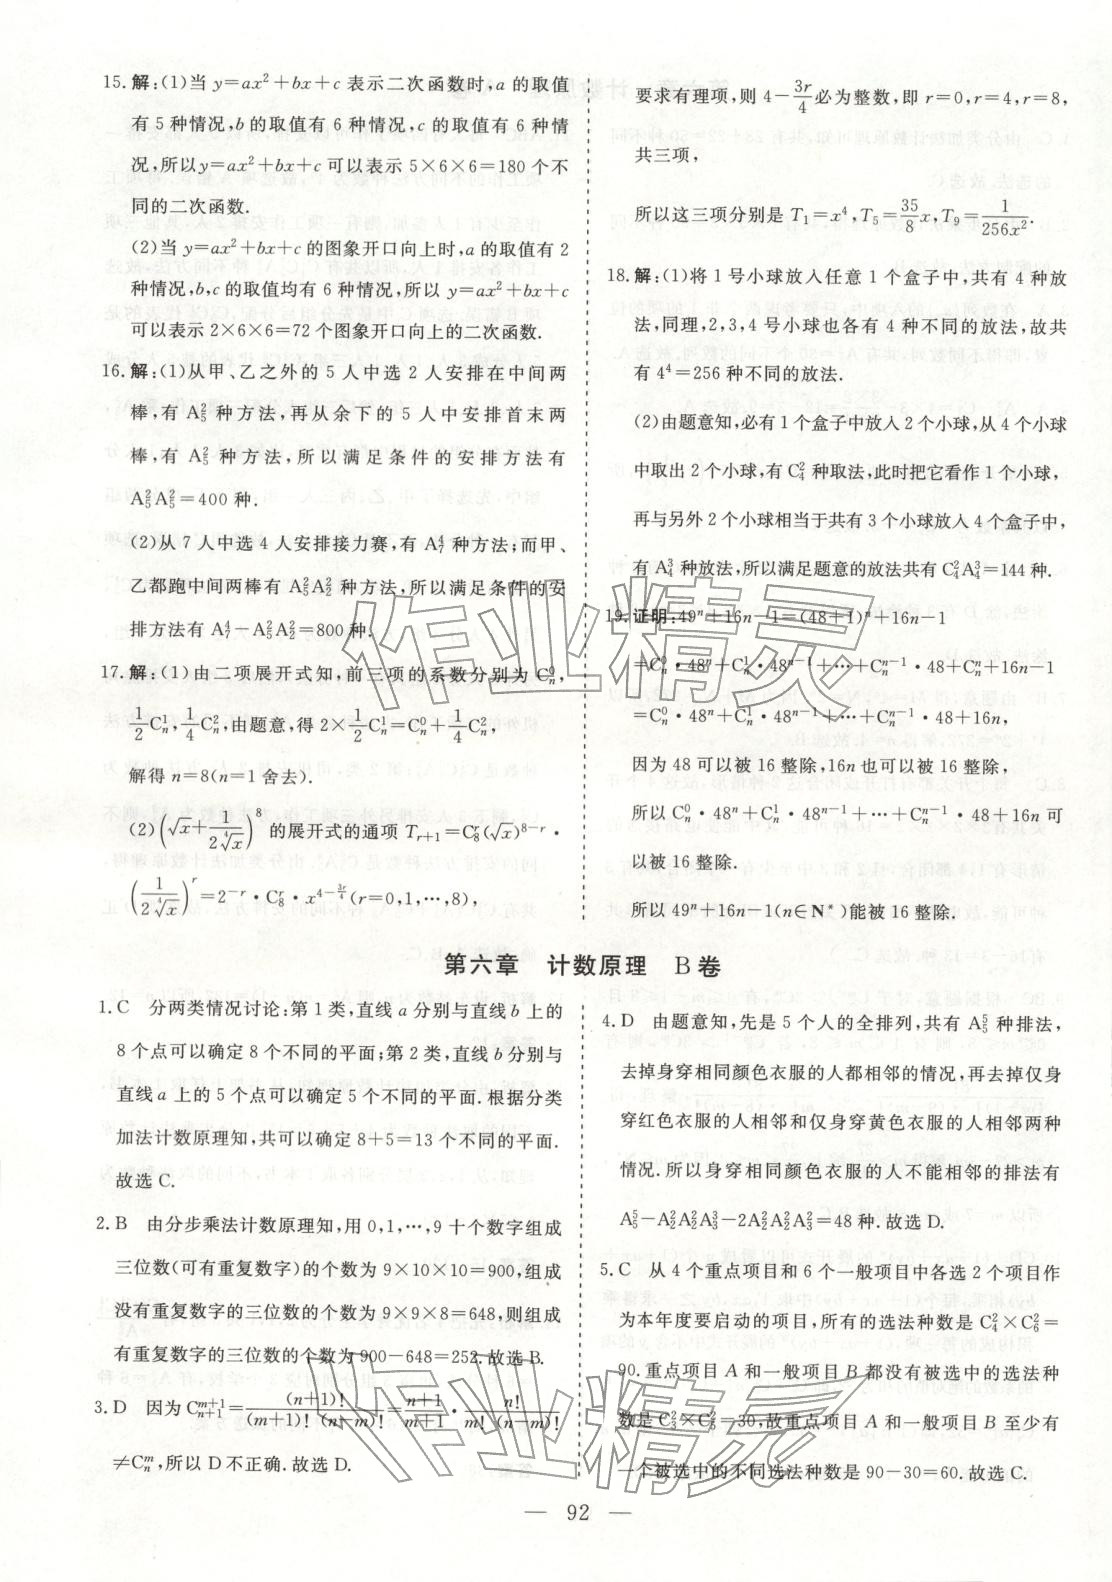 15. 解:(1)当 y=ax²+bx+c 表示二次函数时,a 的取值
有 5 种情况,b 的取值有 6 种情况,c 的取值有 6 种情
况,所以 y=ax²+bx+c 可以表示 5×6×6=180 个不
同的二次函数.
(2)当 y=ax²+bx+c 的图象开口向上时,a 的取值有 2
种情况,b,c 的取值均有 6 种情况,所以 y=ax²+bx+c
可以表示 2×6×6=72 个图象开口向上的二次函数.
16. 解:(1)从甲、乙之外的 5 人中选 2 人安排在中间两
棒,有 A₅² 种方法,再从余下的 5 人中安排首末两
棒,有 A₅² 种方法,所以满足条件的安排方法有
A₅²A₅²=400 种.
(2)从 7 人中选 4 人安排接力赛,有 A₇⁴ 种方法;而甲、
乙都跑中间两棒有 A₅²A₂² 种方法,所以满足条件的安
排方法有 A₇⁴−A₅²A₂²=800 种.
17. 解:(1)由二项展开式知,前三项的系数分别为 Cₙ⁰,
1/2 Cₙ¹, 1/4 Cₙ²,由题意,得 2×1/2 Cₙ¹=Cₙ⁰+1/4 Cₙ²,
解得 n=8(n=1 舍去).
(2)(√x+1/(2⁴√x))⁸ 的展开式的通项 Tᵣ₊₁=C₈ʳ(√x)⁸⁻ʳ·
(1/(2⁴√x))ʳ=2⁻ʳ·C₈ʳ·x^(4−3r/4)(r=0,1,…,8),
要求有理项,则 4−3r/4 必为整数,即 r=0,r=4,r=8,
共三项,
所以这三项分别是 T₁=x⁴,T₅=35/8 x,T₉=1/(256x²).
18. 解:(1)将 1 号小球放入任意 1 个盒子中,共有 4 种放
法,同理,2,3,4 号小球也各有 4 种不同的放法,故共
有 4⁴=256 种不同的放法.
(2)由题意知,必有 1 个盒子中放入 2 个小球,从 4 个小球
中取出 2 个小球,有 C₄² 种取法,此时把它看作 1 个小球,
再与另外 2 个小球相当于共有 3 个小球放入 4 个盒子中,
有 A₄³ 种放法,所以满足题意的放法共有 C₄²A₄³=144 种.
19. 证明:49ⁿ+16n−1=(48+1)ⁿ+16n−1
=Cₙ⁰·48ⁿ+Cₙ¹·48ⁿ⁻¹+…+Cₙⁿ⁻¹·48+Cₙⁿ+16n−1
=Cₙ⁰·48ⁿ+Cₙ¹·48ⁿ⁻¹+…+Cₙⁿ⁻¹·48+16n,
因为 48 可以被 16 整除,16n 也可以被 16 整除,
所以 Cₙ⁰·48ⁿ+Cₙ¹·48ⁿ⁻¹+…+Cₙⁿ⁻¹·48+16n 可
以被 16 整除.
所以 49ⁿ+16n−1(n∈N*)能被 16 整除.
第六章 计数原理 B 卷
1. C 分两类情况讨论:第 1 类,直线 a 分别与直线 b 上的
8 个点可以确定 8 个不同的平面;第 2 类,直线 b 分别与
直线 a 上的 5 个点可以确定 5 个不同的平面.根据分类
加法计数原理知,共可以确定 8+5=13 个不同的平面.
故选 C.
2. B 由分步乘法计数原理知,用 0,1,…,9 十个数字组成
三位数(可有重复数字)的个数为 9×10×10=900,组成
没有重复数字的三位数的个数为 9×9×8=648,则组成
有重复数字的三位数的个数为 900−648=252.故选 B.
3. D 因为 Cₙ₊₁ᵐ⁺¹=(n+1)!/((m+1)!(n−m)!)=(n+1)/(m+1)·n!/(m!(n−m)!)
≠Cₙᵐ,所以 D 不正确.故选 D.
4. D 由题意知,先是 5 个人的全排列,共有 A₅⁵ 种排法,
去掉身穿相同颜色衣服的人都相邻的情况,再去掉仅身
穿红色衣服的人相邻和仅身穿黄色衣服的人相邻两种
情况.所以身穿相同颜色衣服的人不能相邻的排法有
A₅⁵−A₂²A₂²A₃³−2A₂²A₂²A₃²=48 种.故选 D.
5. C 从 4 个重点项目和 6 个一般项目中各选 2 个项目作
为本年度要启动的项目,所有的选法种数是 C₄²×C₆²=
90.重点项目 A 和一般项目 B 都没有被选中的选法种
数是 C₃²×C₅²=30,故重点项目 A 和一般项目 B 至少有
一个被选中的不同选法种数是 90−30=60.故选 C.
— 92 —
作业精灵
作业精灵